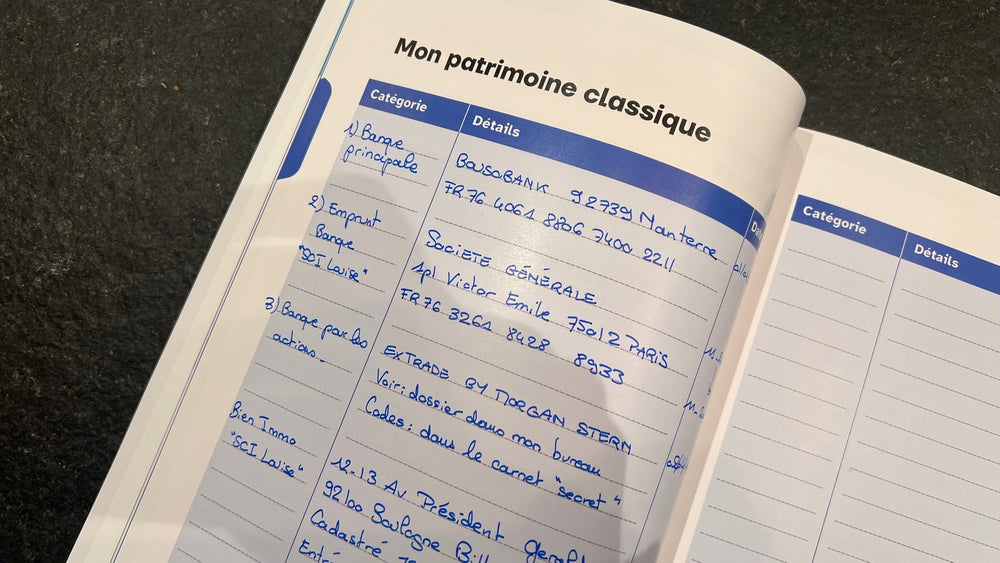 Mon patrimoine classique
Catégorie
Détails
1) Banque
principale
BOUSOBANK 92739 Nanterre
FR 76 4061 8806 7400 2211
2) Emprunt
Banque
"SCI Louise"
SOCIETE GÉNÉRALE
1pl Victor Emile 75012 PARIS
FR 76 3261 8428 8933
3) Banque pour les
actions.
EXTRADE BY MORGAN STERN
Voir: dossier dans mon bureau
Codes: dans le carnet "secret"
Bien Immo
"SCI Louise"
12.13 Av Président
92100 Boulogne
Cadastré
Catégorie
Détails